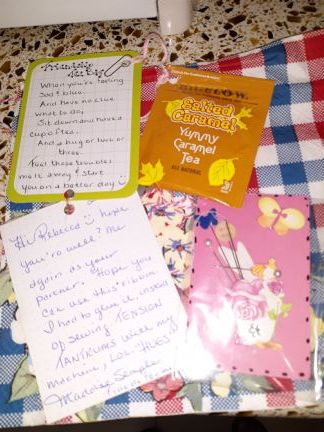 Friendship
Tea Bag
When you're feeling
sad & blue.
And have no clue
what to do,
Sit down and have a
cup of tea.
And a hug or two or
three.
Feel those troubles
melt away & start
You on a better day
BIGELOW
Salted
Caramel
Yummy
Caramel
Tea
ALL NATURAL
Hi Rebecca hope
you're well! Me
again as your
partner. Hope you
can use this ribbon
I had to glue it, instead
of sewing TENSION
TANTRUMS with my
machine, LOL. HUGS